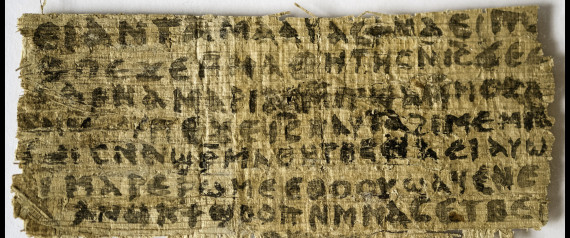 ⲉⲓⲁⲛⲧⲁⲙⲁⲁⲩⲁⲥϯⲛⲁⲉⲓⲡ
ⲡⲉϫⲉⲙⲙⲁⲑⲏⲧⲏⲥⲛⲓⲥϫⲉ
ⲁⲣⲛⲁⲙⲁⲣⲓⲁⲙⲙⲡϣⲁⲙⲙⲟⲥⲁ
ⲡⲉϫⲉⲓⲥⲛⲁⲩⲧⲁϩⲓⲙⲉⲙⲛ
ⲥⲛⲁϣⲣⲙⲁⲑⲏⲧⲏⲥⲛⲁⲉⲓⲁⲩⲱ
ⲙⲁⲣⲉⲣⲱⲙⲉⲉⲑⲟⲟⲩϣⲁϥⲉⲛⲉ
ⲁⲛⲟⲕϯϣⲟⲟⲡⲛⲙⲙⲁⲥⲉⲧⲃⲉ